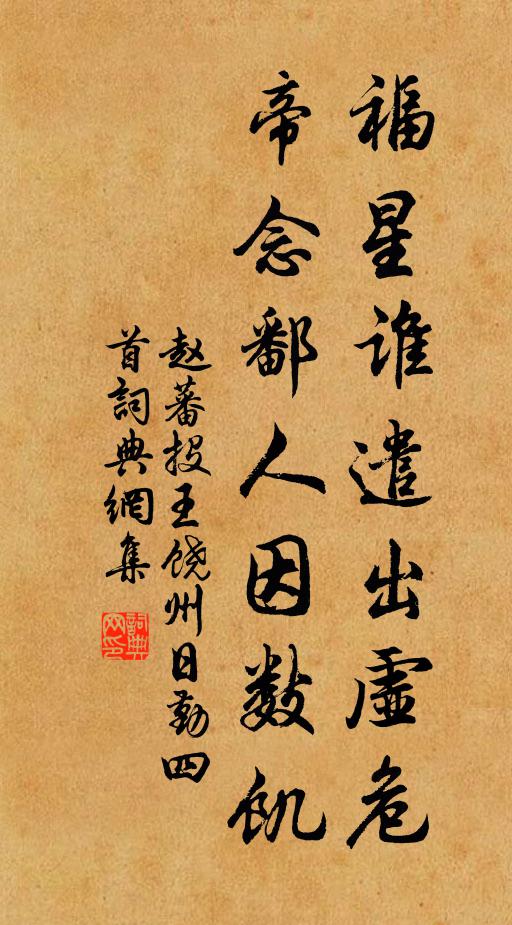 福星谁遣出虚危
帝念鄱人因数饥
赵蕃投王饶州日勤四
首詞典網集
詞典
网印